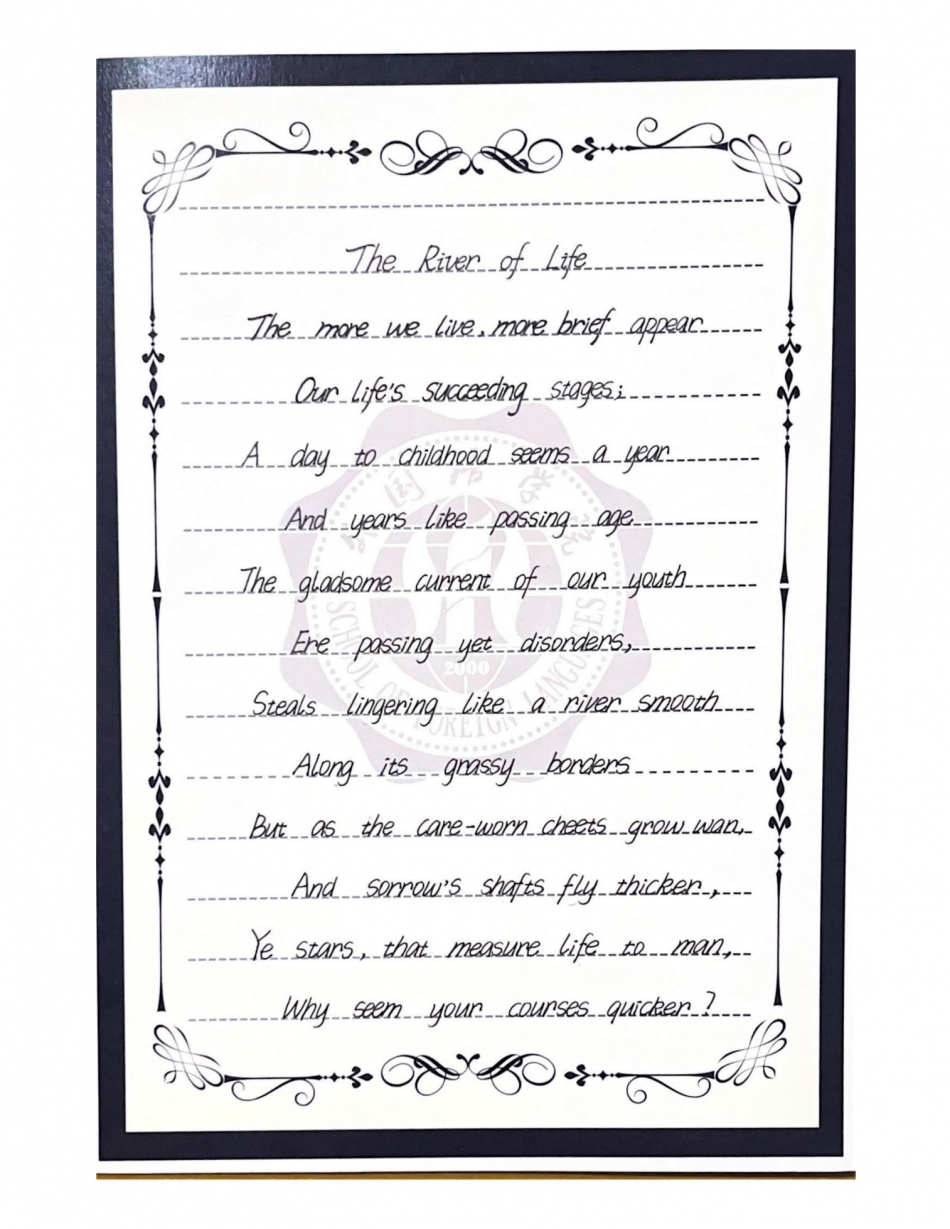 The River of Life
The more we live, more brief appear
Our life's succeeding stages;
A day to childhood seems a year
And years like passing age
The gladsome current of our youth
Ere passing yet disorders,
Steals lingering like a river smooth
Along its grassy borders
But as the care-worn cheets grow wan,
And sorrow's shafts fly thicker,
Ye stars, that measure life to man,
Why seem your courses quicker?
2000
SCHOOL OF FOREIGN LANGUAGES